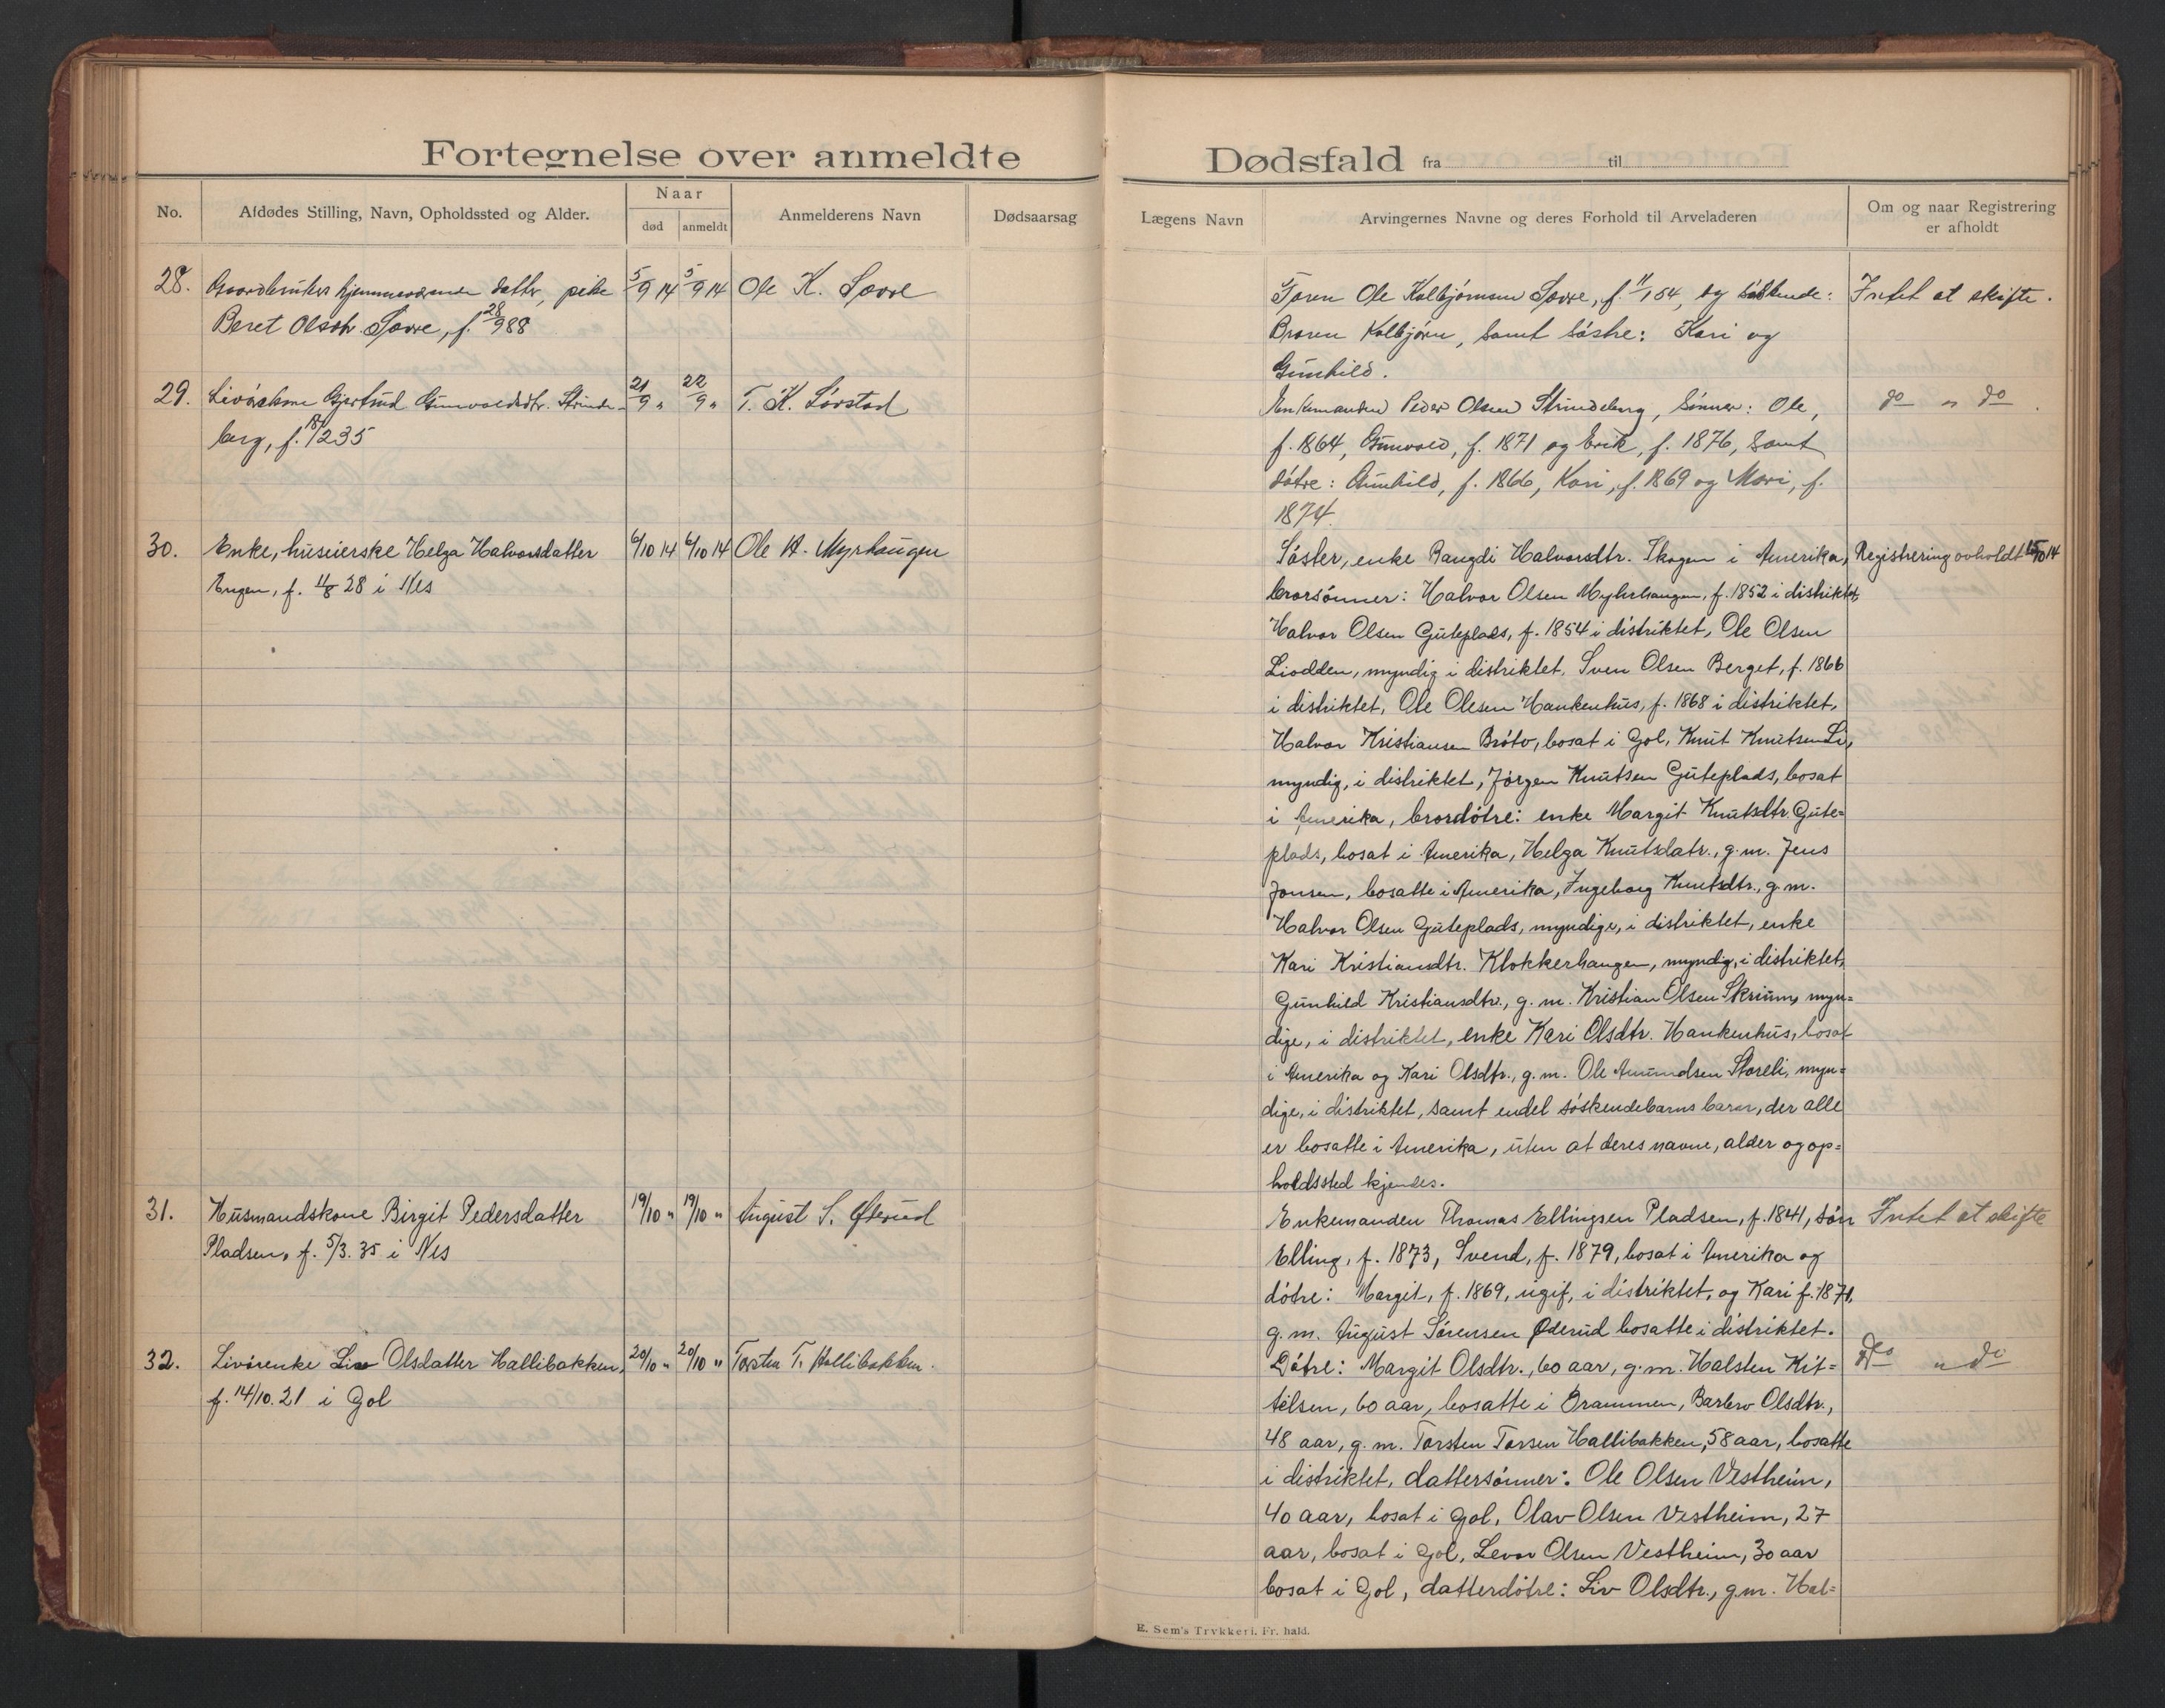 Fortegnelse over anmeldte Dødsfald fra til
No. Afdødes Stilling, Navn, Opholdssted og Alder. Naar død anmeldt Anmelderens Navn Dødsaarsag
Lægens Navn Arvingernes Navne og deres Forhold til Arveladeren Om og naar Registrering er afholdt
28. Gaardbruker hjemmeværende datter, pike 5/9 14 5/9 14 Ole K.
Beret Olsdtr. f. 28/9 88
Faren Ole Kolbjørnsen f. 54, og søskende: Intet at skifte.
Broren Kolbjørn, samt søstre: Kari og
Gunhild.
29. Gjertrud Gunvoldsdtr. Strinde- 21/9 " 22/9 " T. K. Sørstad
berg, f. 35
Enkemanden Peder Olsen Strindeberg, sønner: Ole, do " do.
f. 1864, Gunvold, f. 1871 og Erik, f. 1876, samt
døtre: Gunhild, f. 1866, Kari, f. 1869 og Mari, f.
1874.
30. Enke, huseierske Helga Halvorsdatter 6/10 14 6/10 14 Ole H. Myrhaugen
Engen, f. 11/8 28 i Nes
Søster, enke Rangdi Halvorsdtr. Skogen i Amerika, Registrering avholdt 15/10 14
brorsønner: Halvor Olsen Myhrhaugen, f. 1852 i distriktet,
Halvor Olsen Guteplads, f. 1854 i distriktet, Ole Olsen
Liodden, myndig i distriktet, Sven Olsen Berget, f. 1866
i distriktet, Ole Olesen Hankenhus, f. 1868 i distriktet,
Halvor Kristiansen Bråto, bosat i Gol, Knut Knutsen Li,
myndig, i distriktet, Jørgen Knutsen Guteplads, bosat
i Amerika, brordøtre: enke Margit Knutsdtr. Gute=
plads, bosat i Amerika, Helga Knutsdatr., g. m. Jens
Jonsen, bosatte i Amerika, Ingeborg Knutsdtr., g. m.
Halvor Olsen Guteplads, myndige, i distriktet, enke
Kari Kristiansdtr. Klokkerhaugen, myndig, i distriktet,
Gunhild Kristiansdtr., g. m. Kristian Olsen Skrium, myn=
dige, i distriktet, enke Kari Olsdtr. Hankenhus, bosat
i Amerika og Kari Olsdtr., g. m. Ole Amundsen Storeli, myn=
dige, i distriktet, samt endel søskendebarns barn, der alle
er bosatte i Amerika, uten at deres navne, alder og op=
holdssted kjendes.
31. Husmandskone Birgit Pedersdatter 19/10 " 19/10 " August S. Øterud
Pladsen, f. 5/3. 35 i Nes
Enkemanden Thomas Ellingsen Pladsen, f. 1841, søn Intet at skifte
Elling, f. 1873, Svend, f. 1879, bosat i Amerika og
døtre: Margit, f. 1869, ugif, i distriktet, og Kari f. 1871,
g. m. August Sørensen Øderud bosatte i distriktet.
32. Livørenke Liv Olsdatter Hallibakken, 20/10 " 20/10 " Torsten T. Hallibakken.
f. 14/10. 21 i Gol
Døtre: Margit Olsdtr., 60 aar, g. m. Halsten Kit= do " do
tilsen, 60 aar, bosatte i Drammen, Barbro Olsdtr.,
48 aar, g. m. Torsten Torsen Hallibakken, 58 aar, bosatte
i distriktet, dattersønner: Ole Olsen Vestheim,
40 aar, bosat i Gol, Olav Olsen Vestheim, 27
aar, bosat i Gol, Levor Olsen Vestheim, 30 aar
bosat i Gol, datterdøtre: Liv Olsdtr., g. m. Hal=
E. Sem's Trykkeri, Fr. hald.